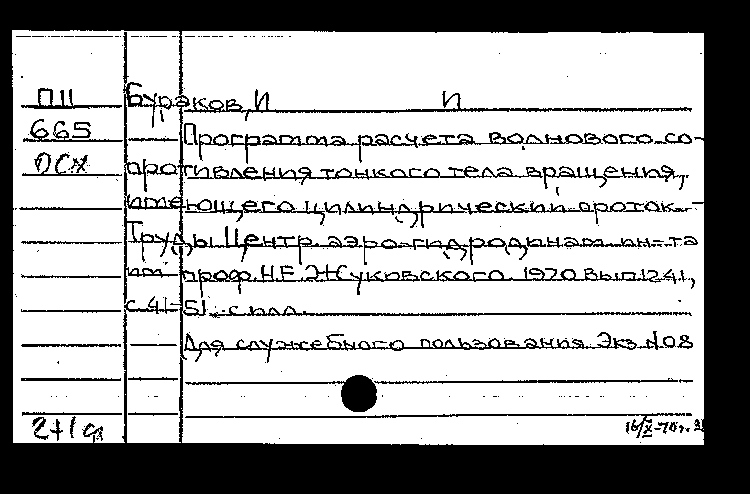 П11 Бураков, И И
665 Программа расчета волнового со-
ОСХ противления тонкого тела вращения,
имеющего цилиндрический проток. –
Труды Центр. аэро-гидродинам. ин-та
им. проф. Н.Е. Жуковского. 1970 вып 1241,
с 41-51. с илл.
Для служебного пользования Экз №08
2+1
16/X-70г.